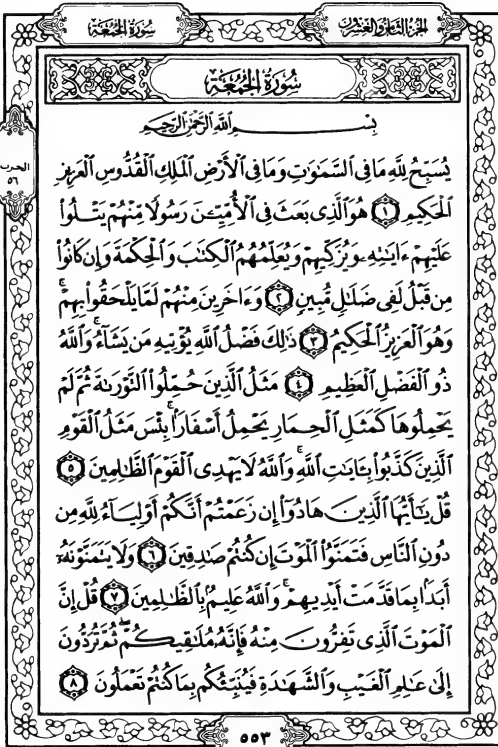 الجزء الثامن والعشرون
سورة الجمعة
سُورَةُ الْجُمُعَةِ
بِسْمِ اللَّهِ الرَّحْمَٰنِ الرَّحِيمِ
يُسَبِّحُ لِلَّهِ مَا فِي السَّمَٰوَٰتِ وَمَا فِي الْأَرْضِ الْمَلِكِ الْقُدُّوسِ الْعَزِيزِ
الْحَكِيمِ ١ هُوَ الَّذِي بَعَثَ فِي الْأُمِّيِّـۧنَ رَسُولًا مِّنْهُمْ يَتْلُوا۟
عَلَيْهِمْ ءَايَٰتِهِۦ وَيُزَكِّيهِمْ وَيُعَلِّمُهُمُ الْكِتَٰبَ وَالْحِكْمَةَ وَإِن كَانُوا۟
مِن قَبْلُ لَفِي ضَلَٰلٍ مُّبِينٍ ٢ وَءَاخَرِينَ مِنْهُمْ لَمَّا يَلْحَقُوا۟ بِهِمْ ۚ
وَهُوَ الْعَزِيزُ الْحَكِيمُ ٣ ذَٰلِكَ فَضْلُ اللَّهِ يُؤْتِيهِ مَن يَشَآءُ ۚ وَاللَّهُ
ذُو الْفَضْلِ الْعَظِيمِ ٤ مَثَلُ الَّذِينَ حُمِّلُوا۟ التَّوْرَىٰةَ ثُمَّ لَمْ
يَحْمِلُوهَا كَمَثَلِ الْحِمَارِ يَحْمِلُ أَسْفَارًا ۚ بِئْسَ مَثَلُ الْقَوْمِ
الَّذِينَ كَذَّبُوا۟ بِـَٔايَٰتِ اللَّهِ ۚ وَاللَّهُ لَا يَهْدِي الْقَوْمَ الظَّٰلِمِينَ ٥
قُلْ يَٰٓأَيُّهَا الَّذِينَ هَادُوٓا۟ إِن زَعَمْتُمْ أَنَّكُمْ أَوْلِيَآءُ لِلَّهِ مِن
دُونِ النَّاسِ فَتَمَنَّوُا۟ الْمَوْتَ إِن كُنتُمْ صَٰدِقِينَ ٦ وَلَا يَتَمَنَّوْنَهُۥٓ
أَبَدًۢا بِمَا قَدَّمَتْ أَيْدِيهِمْ ۚ وَاللَّهُ عَلِيمٌۢ بِالظَّٰلِمِينَ ٧ قُلْ إِنَّ
الْمَوْتَ الَّذِي تَفِرُّونَ مِنْهُ فَإِنَّهُۥ مُلَٰقِيكُمْ ۖ ثُمَّ تُرَدُّونَ
إِلَىٰ عَٰلِمِ الْغَيْبِ وَالشَّهَٰدَةِ فَيُنَبِّئُكُم بِمَا كُنتُمْ تَعْمَلُونَ ٨
الحزب
٥٦
٥٥٣